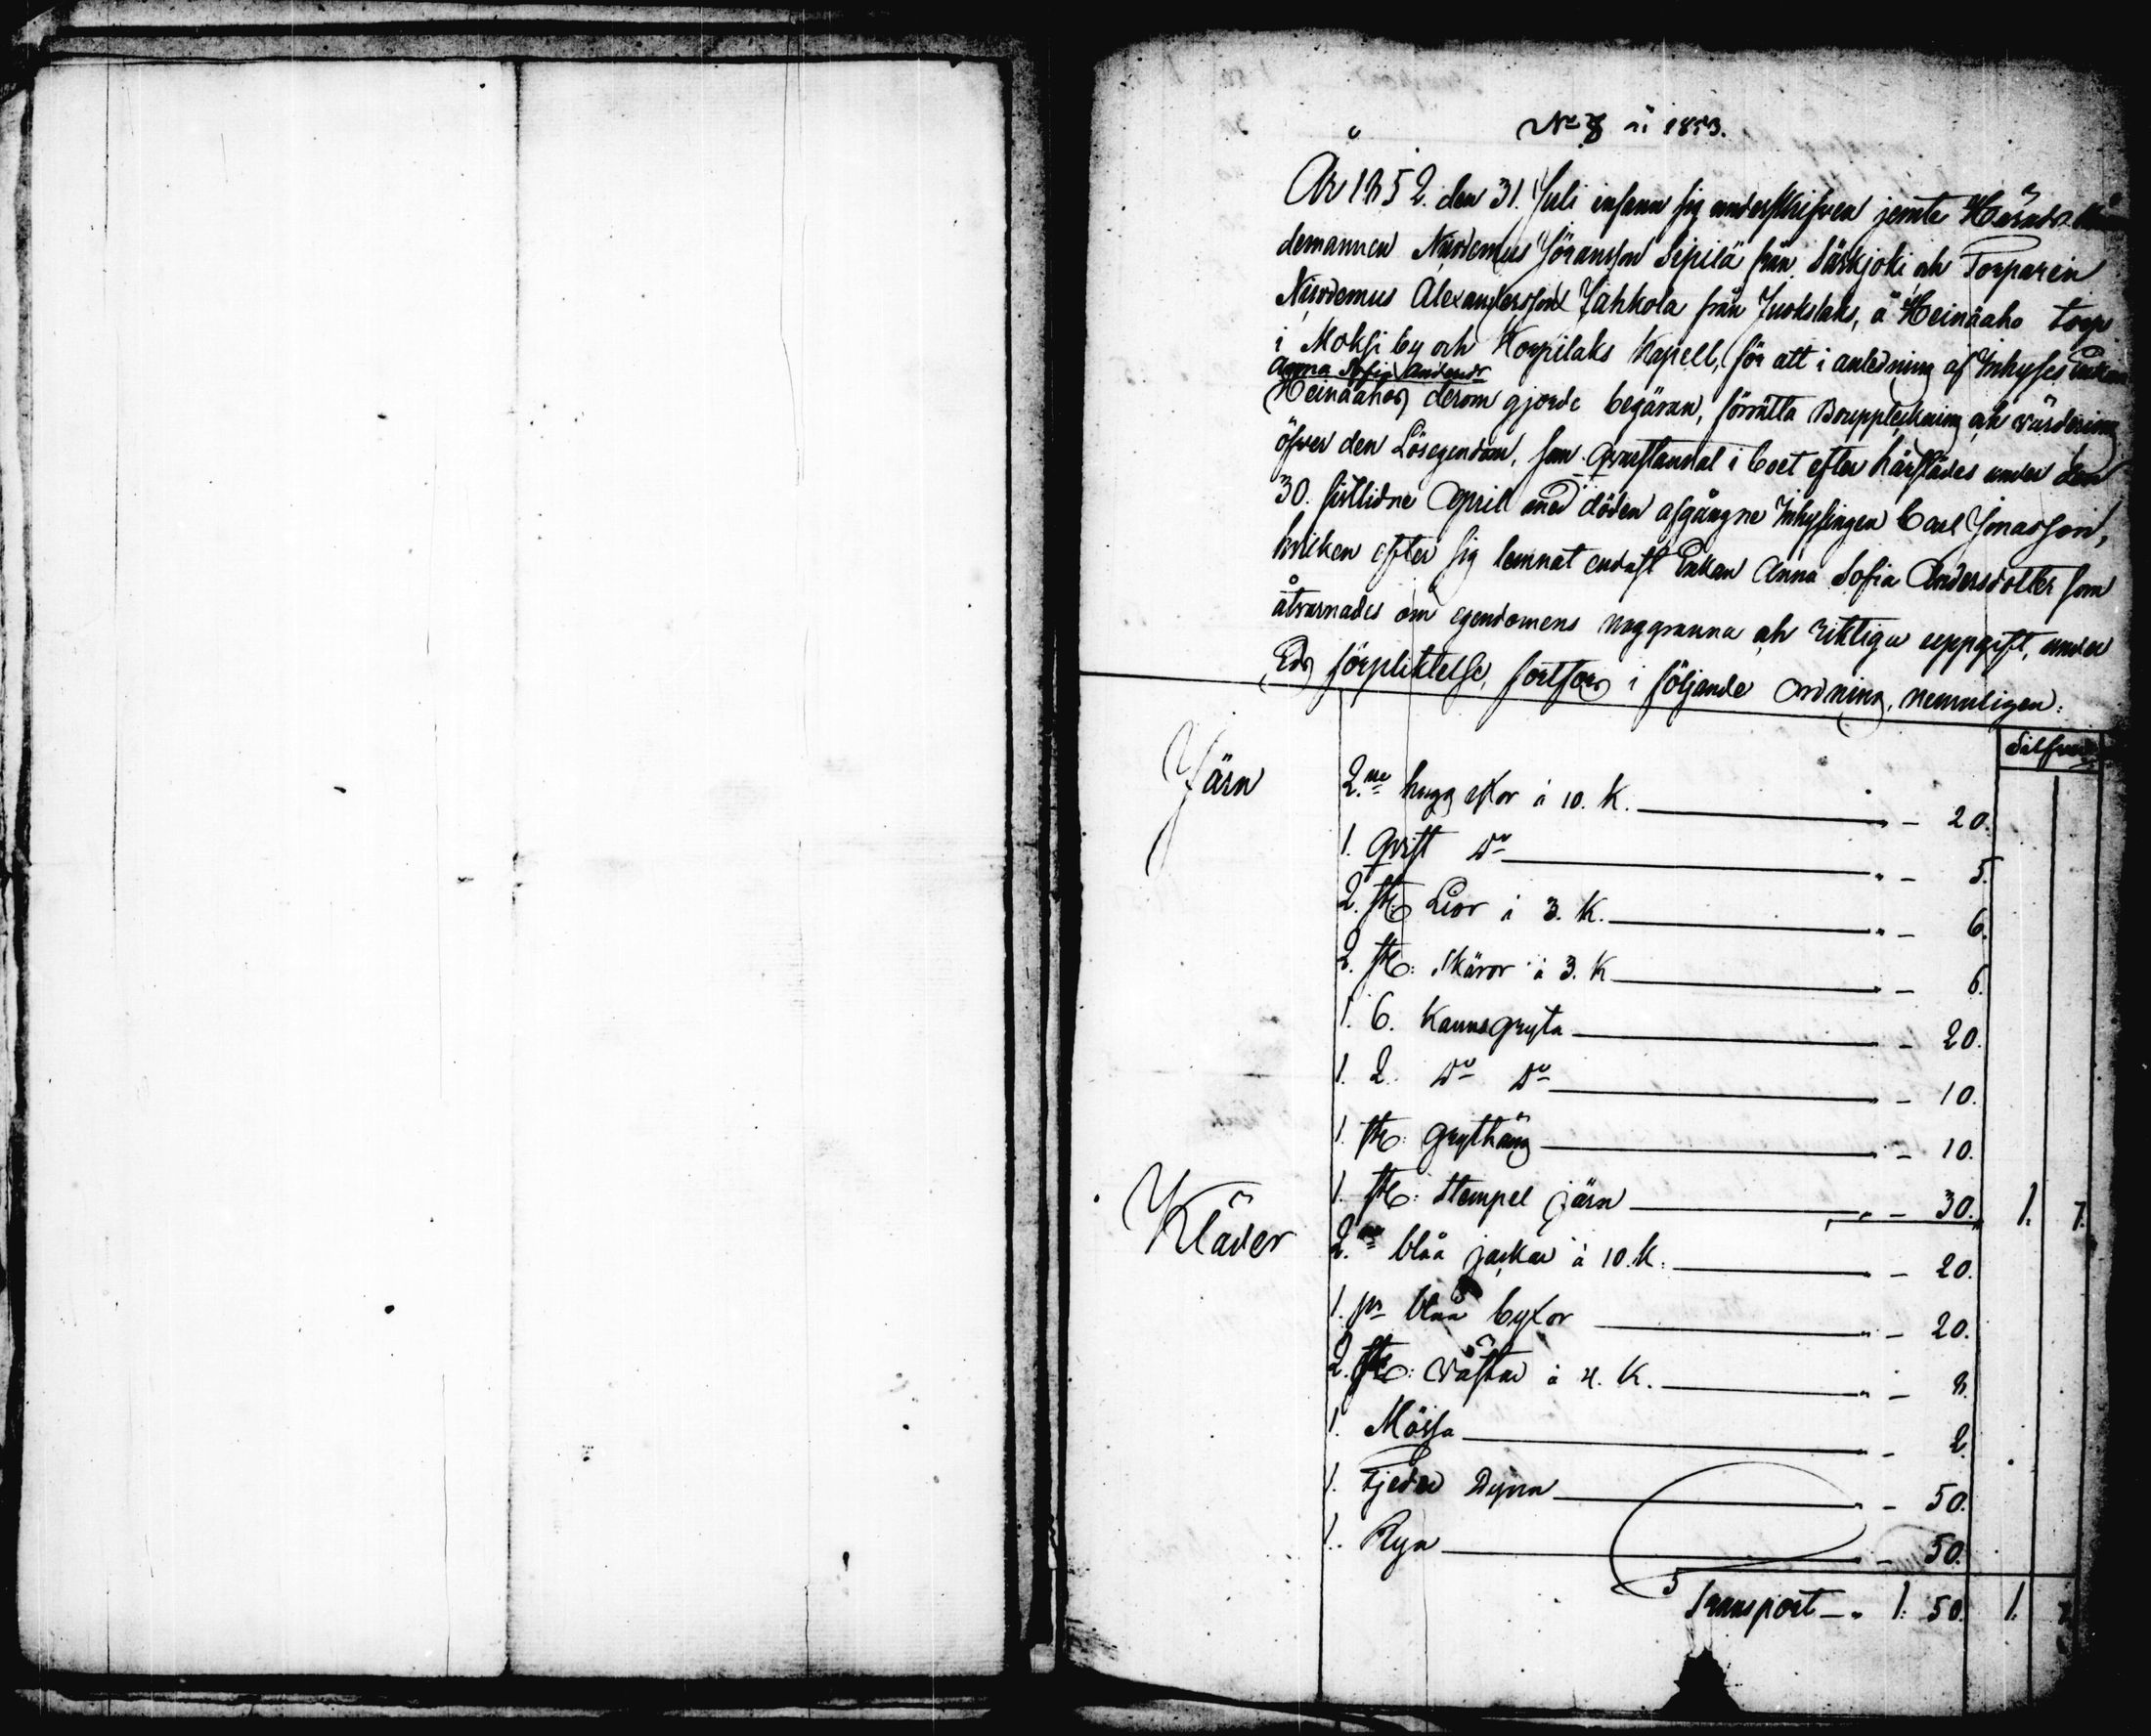 No 8 a 1853.
År 1852. den 31. Juli infann sig underskrifven jemte Härads
demannen Nicodemus Göransson Sipilä från Särkjoki och Torparen
Nicodemus Alexandersson Jahkola från Juokslaks, å Heinäaho torp
i Moksi by och Korpilaks Kapell, för att i anledning af Inhyses Enkan
Anna Sofia Andersdr
Heinäahos derom gjorde begäran, förrätta Bouppteckning och värdering
öfver den Lösegendom, som qvarstannat i boet efter härstädes under den
30. sistlidne April med döden afgångne Inhysingen Carl Jonasson,
hvilken efter sig lemnat endast Enkan Anna Sofia Andersdotter som
åtvarnades om egendomens noggranna och riktiga uppgift, under
Eds förpliktelse, fortfors i följande ordning, nemnligen:
Silfver
Järn 2.ne hugg yxor à 10. K. " – 20.
1. qvist do " – 5.
2. st: Lior à 3. K. " – 6.
2. st: Skäror à 3. K " – 6.
1. 6. Kannsgryta " – 20.
1. 2. do do " – 10.
1. st: grythäng " – 10.
1. st: Stempel järn " – 30. 1. 7.
Kläder 2.ne blåa jackor à 10. K. " – 20.
1. pr blåa byxor " – 20.
2. st: västar à 4. K. " – 8.
1. Mössa " – 2.
1. Fjeder Dyna " – 50.
1. Rya " – 50.
Transport – " 1. 50. 1. 7.